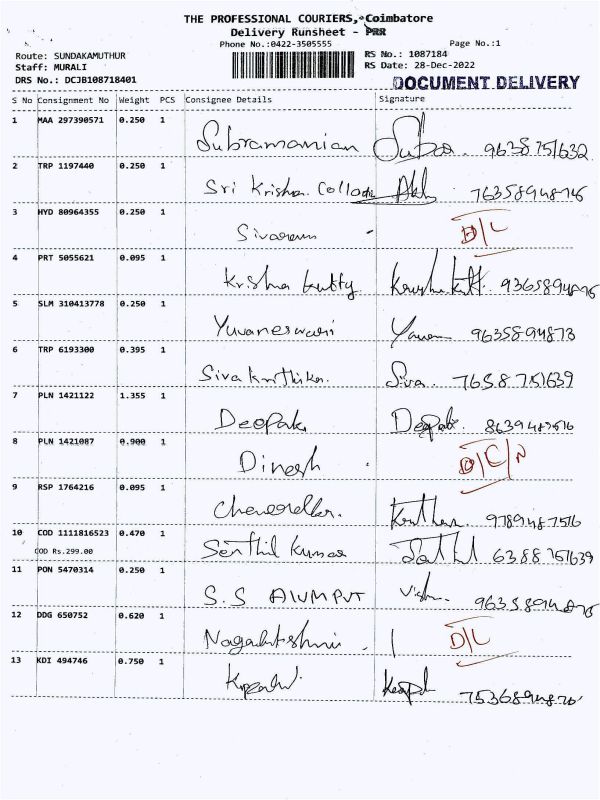 THE PROFESSIONAL COURIERS, Coimbatore
Delivery Runsheet - PRR
Phone No.:0422-3505555
Page No.:1
Route: SUNDAKAMUTHUR
RS No.: 1087184
Staff: MURALI
RS Date: 28-Dec-2022
DRS No.: DCJB108718401
DOCUMENT DELIVERY
S No Consignment No Weight PCS Consignee Details Signature
1 MAA 297390571 0.250 1 Subramanian Subra. 9638751632
2 TRP 1197440 0.250 1 Sri Krishna College
3 HYD 80964355 0.250 1 Sivaram D/L
4 PRT 5055621 0.095 1 Krishna kutty
5 SLM 310413778 0.250 1 Yuvaneswari 9635894873
6 TRP 6193300 0.395 1 Sivakarthika. Siva. 7638751639
7 PLN 1421122 1.355 1 Deepak Deepak.
8 PLN 1421087 0.900 1 Dinesh D/C/N
9 RSP 1764216 0.095 1 9789487516
10 COD 1111816523 0.470 1 Senthil Kumar 6388751639
COD Rs.299.00
11 PON 5470314 0.250 1 S.S ALUM PVT
12 DDG 650752 0.620 1 D/L
13 KDI 494746 0.750 1